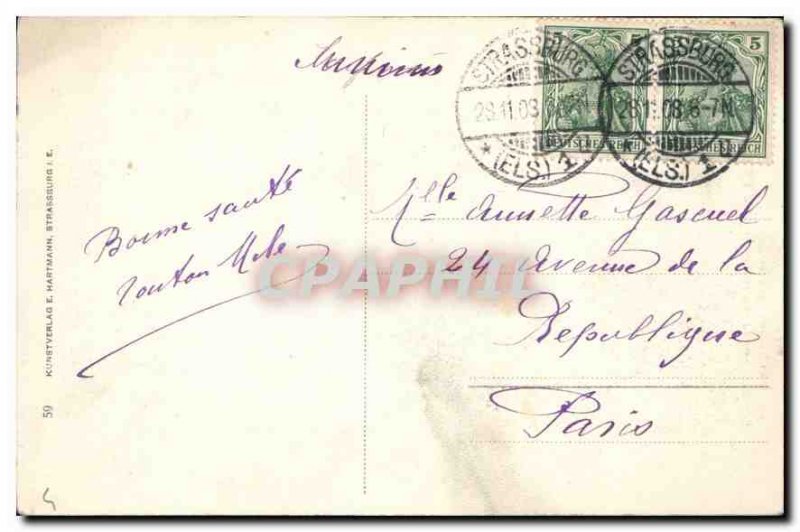 STRASSBURG
28.11.08.
*(ELS.) 1
STRASSBURG
28.11.08.8-7N
*(ELS.) 1
5
5
DEUTSCHES REICH
DEUTSCHES REICH
Bonne santé
tonton
Mlle Annette Gascuel
24 Avenue de la
République
Paris
CPAPHIL
59 KUNSTVERLAG E. HARTMANN, STRASSBURG I. E.